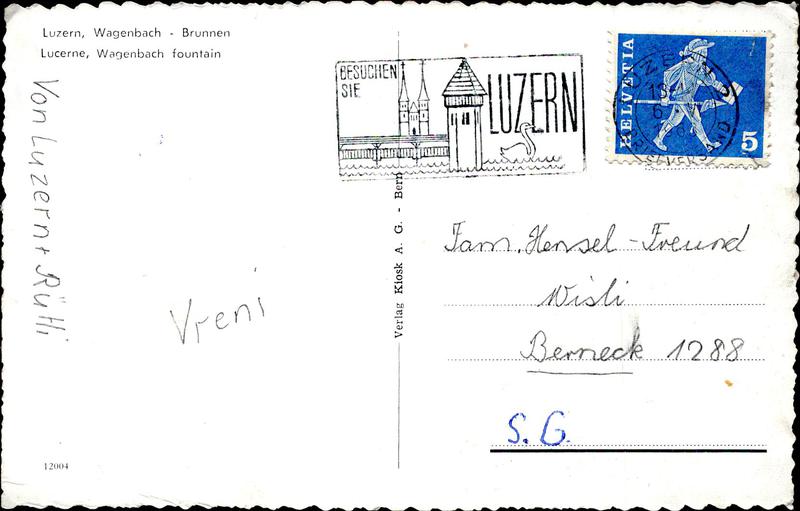 Luzern, Wagenbach - Brunnen
Lucerne, Wagenbach fountain
Von Luzern + Rütli
Vreni
12004
Verlag Kiosk A. G. - Bern
BESUCHEN
SIE
LUZERN
HELVETIA
5
Fam. Hensel-Freund
Wisli
Berneck 1288
S. G.